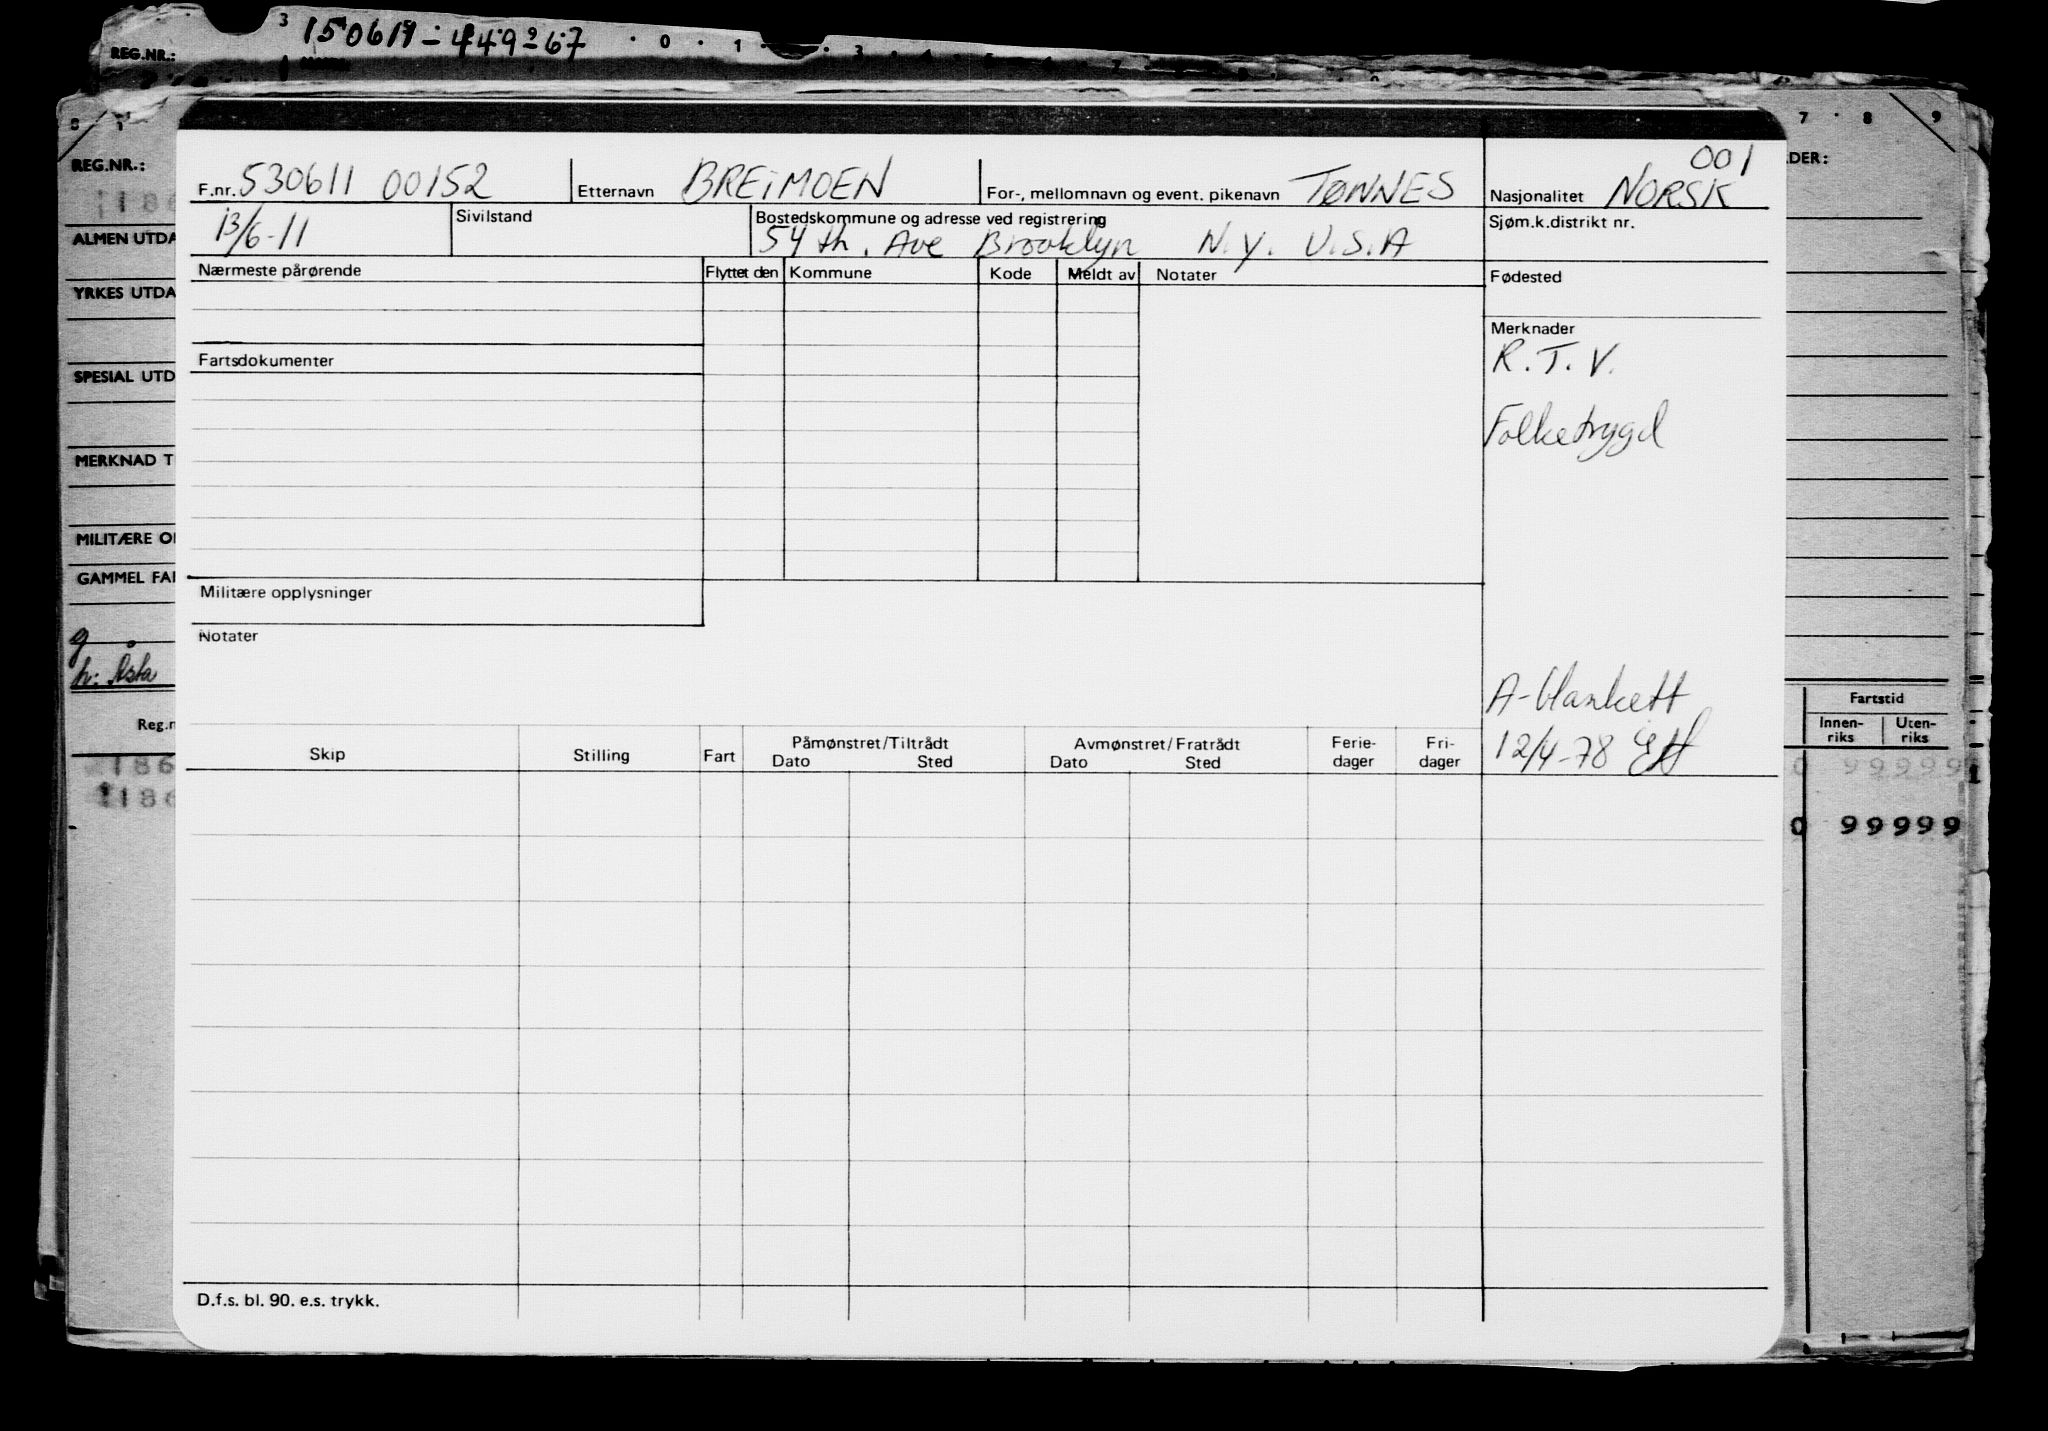 REG.NR.: 3 150611-449-67 0 1 3 4 5 6 7
8 1 7 8 9
REG.NR.:
ALMEN UTDA
YRKES UTDA
SPESIAL UTD
MERKNAD T
MILITÆRE O
GAMMEL FA
h: Asta
Reg.n
186
1186
DER:
Fartstid
Innen-riks Uten-riks
0 99999
0 99999
001
F.nr. 530611 00152 Etternavn BREIMOEN For-, mellomnavn og event. pikenavn TØNNES Nasjonalitet NORSK
13/6-11 Sivilstand Bostedskommune og adresse ved registrering Sjøm.k.distrikt nr.
54 th. Ave Brooklyn N.Y. U.S.A
Nærmeste pårørende Flyttet den Kommune Kode Meldt av Notater Fødested
Merknader
R.T.V.
Fartsdokumenter
Folketrygd
Militære opplysninger
Notater
A-blankett
12/4-78
Skip Stilling Fart Påmønstret/Tiltrådt Dato Sted Avmønstret/Fratrådt Dato Sted Ferie-dager Fri-dager
D.f.s. bl. 90. e.s. trykk.